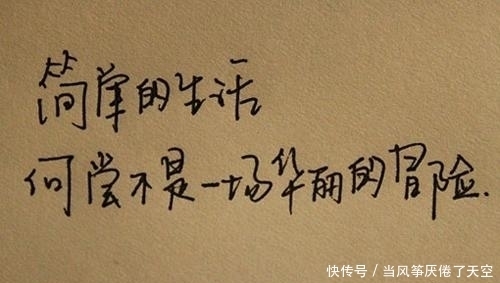 简单的生活
何尝不是一场华丽的冒险.
快传号／当风筝厌倦了天空